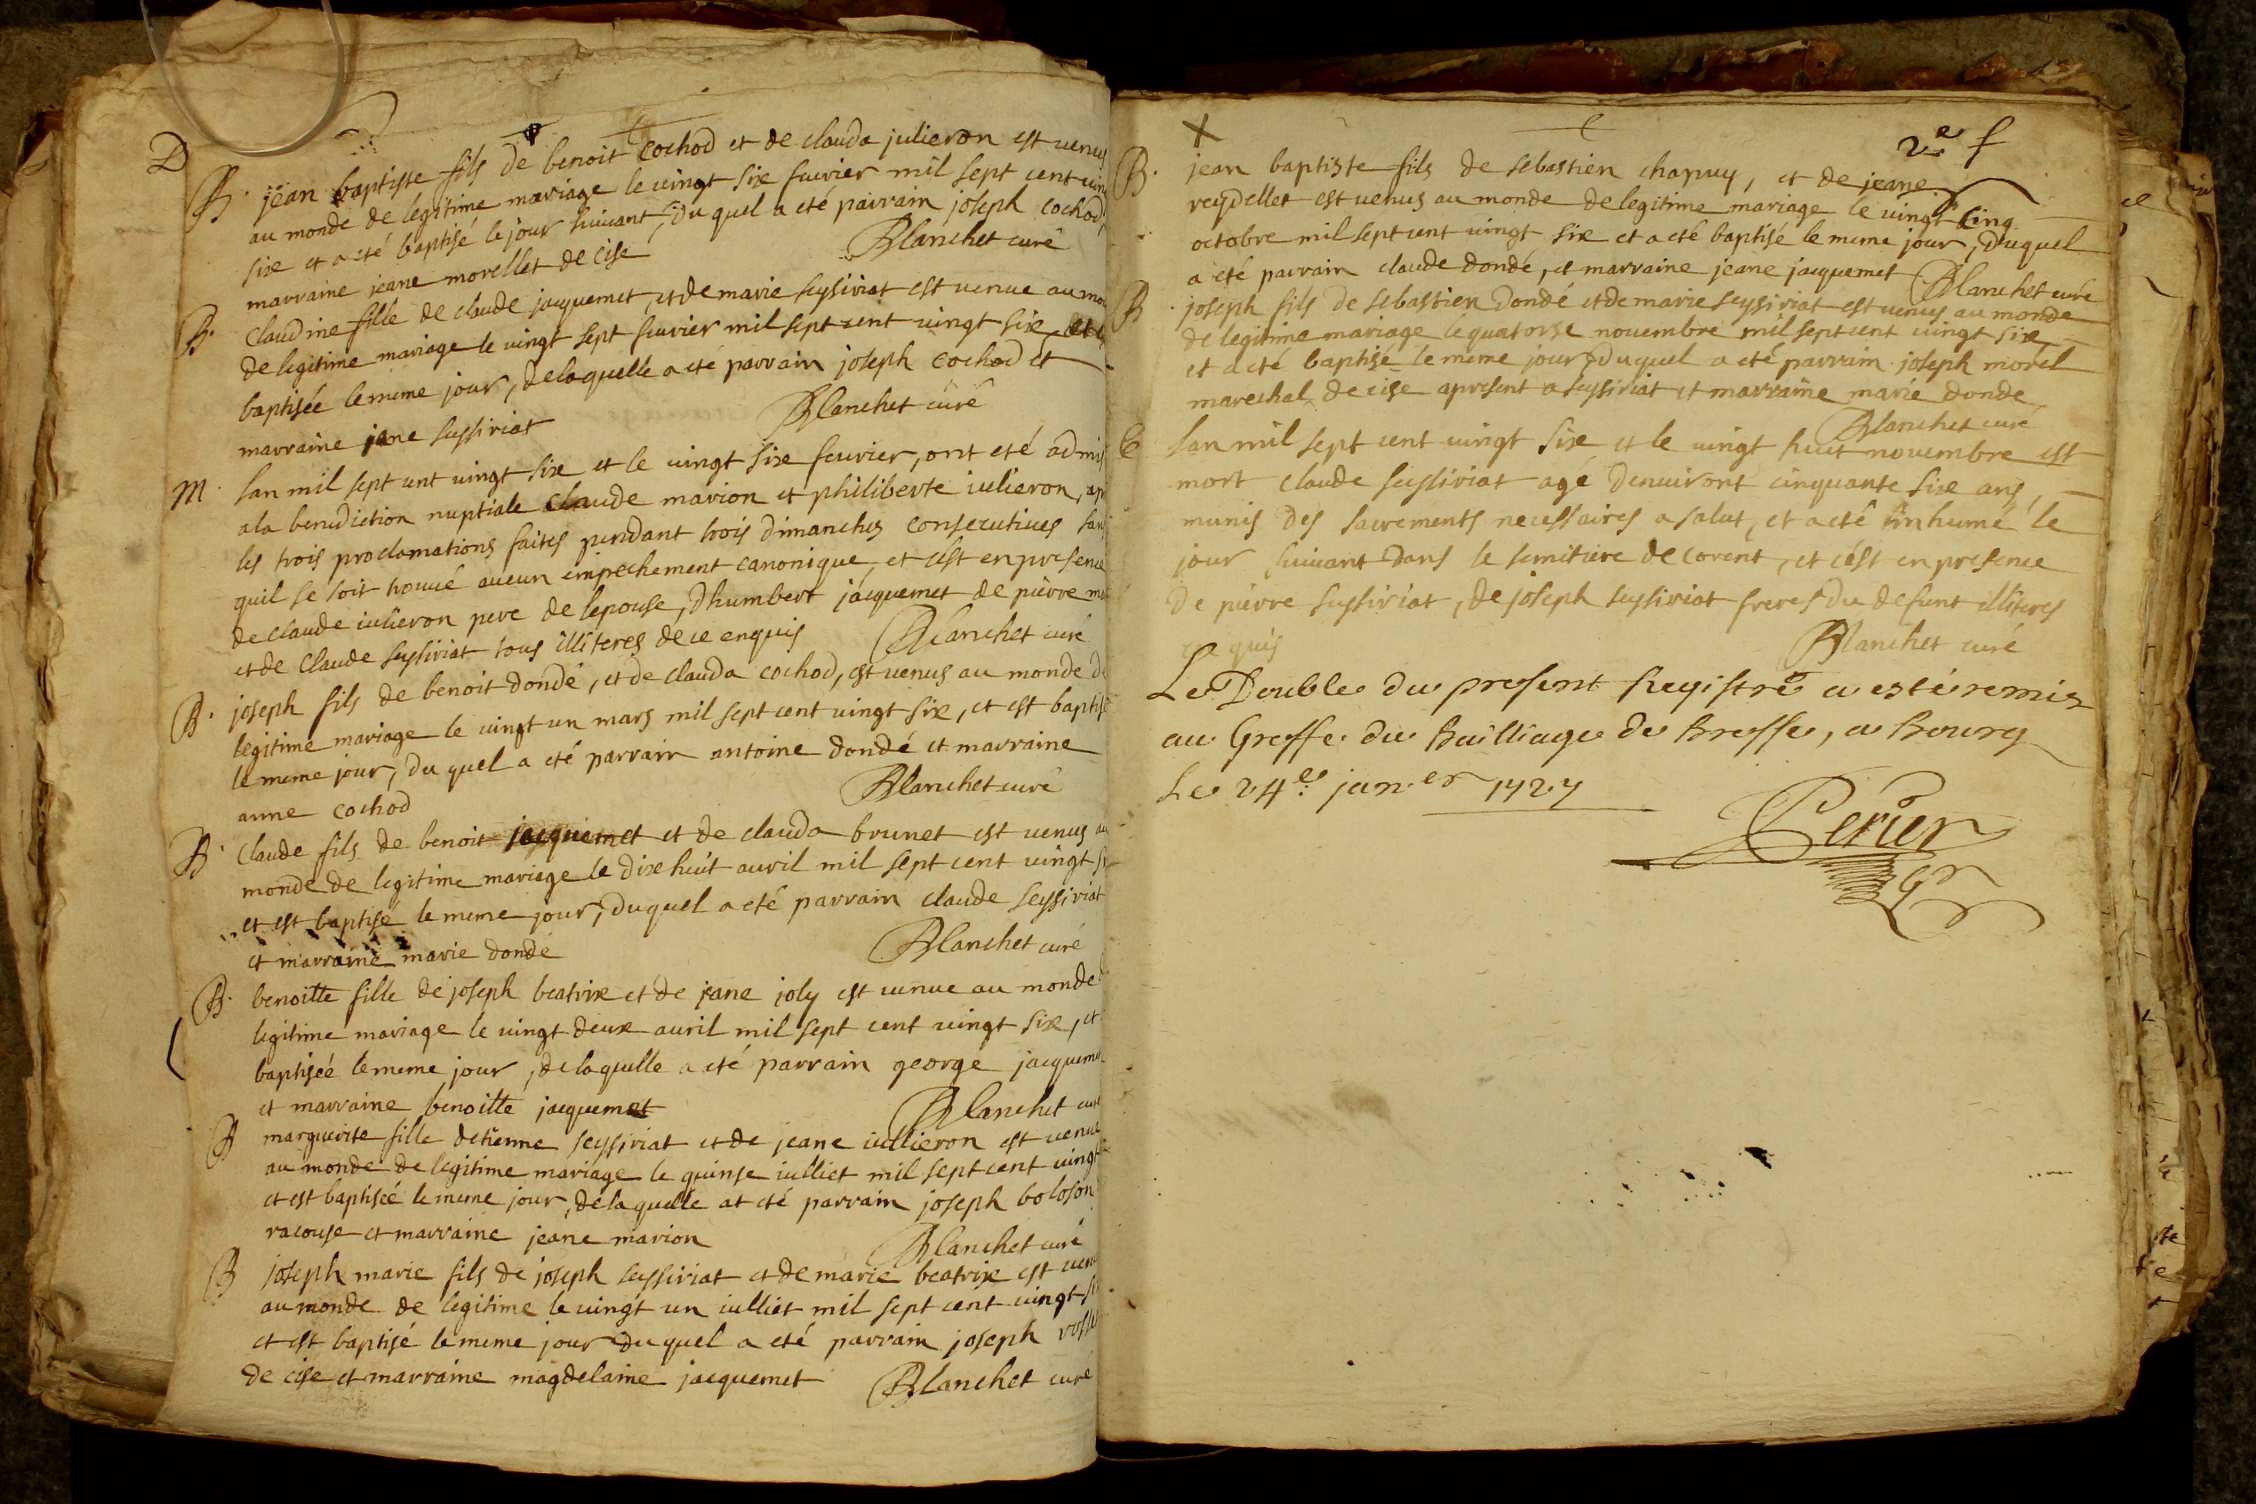 D
B. jean baptiste fils de benoit cochod et de clauda julieron est venus
au monde de legitime mariage le vingt six fevrier mil sept cent vingt
six et a eté baptisé le jour suivant, du quel a eté pairrain joseph cochod,
marraine jeane morellet de cise Blanchet curé
B. Claudine fille de claude jacquemet, et de marie seysiriat est venue au mon
de legitime mariage le vingt sept fevrier mil sept cent vingt six et
baptisée le meme jour, de laquelle a eté parrain joseph cochod et
marraine jane sussiriat Blanchet curé
M. Lan mil sept cent vingt six et le vingt six fevrier, ont eté admis
a la benediction nuptiale Claude marion et philiberte iulieron, apr
les trois proclamations faites pendant trois dimanches consecutives sans
quil se soit trouvé aucun empechement canonique, et cest en presence
de claude iulieron pere de lepouse, d'humbert jacquemet de pierre
et de Claude seysiriat tous illiteres de ce enquis Blanchet curé
B. joseph fils de benoit dondé, et de clauda cochod, est venus au monde de
legitime mariage le vingt un mars mil sept cent vingt six, et est baptisé
le meme jour, du quel a eté parrain antoine dondé et marraine
anne cochod Blanchet curé
B. Claude fils de benoit jacquemet et de clauda brunet est venus au
monde de legitime mariage le dixe huit avril mil sept cent vingt six
et est baptisé le meme jour, duquel a eté parrain claude seyssiriat
et marraine marie dondé Blanchet curé
B. benoitte fille de joseph beatrix et de jeane joly est venue au monde
legitime mariage le vingt deux avril mil sept cent vingt six, et
baptiséé le meme jour, de laquelle a eté parrain george jacquemet
et marraine benoitte jacquemet Blanchet curé
B marguerite fille detienne seyssiriat et de jeane iullieron est venue
au monde de legitime mariage le quinse iulliet mil sept cent vingt
et est baptiséé le meme jour, de laquelle at eté parrain joseph boloson
racouse et marraine jeane marion Blanchet curé
B joseph marie fils de joseph sussiriat et de marie beatrix est venu
au monde de legitime le vingt un iulliet mil sept cent vingt six
et est baptisé le meme jour du quel a eté parrain joseph
de cise et marraine magdelaine jacquemet Blanchet curé
2e f
B. jean baptiste fils de sebastien chapuy, et de jeane
reydellet est venus au monde de legitime mariage le vingt cinq
octobre mil sept cent vingt six et a eté baptisé le meme jour, duquel
a eté parrain claude dondé, et marraine jeane jacquemet Blanchet curé
B. joseph fils de sebastien dondé et de marie seyssiriat est venus au monde
de legitime mariage le quatorse novembre mil sept cent vingt six
et a eté baptisé le meme jour duquel a eté parrain joseph morel
marechal de cise apresent a seyssiriat et marraine marie donde
Blanchet curé
Lan mil sept cent vingt six et le vingt huit novembre est
mort claude seyssiriat agé denviront cinquante six ans,
munis des sacrements necessaires a salut, et a eté inhumé le
jour suivant dans le semitiere de corent, et cést en presence
de pierre sussiriat, de joseph seyssiriat freres du defunt illiteres
Blanchet curé
Le Double du present Registre a esté remis
au Greffe du Bailliage de Bresse, a Bourg
Le 24e janer 1727
Perier
Gr